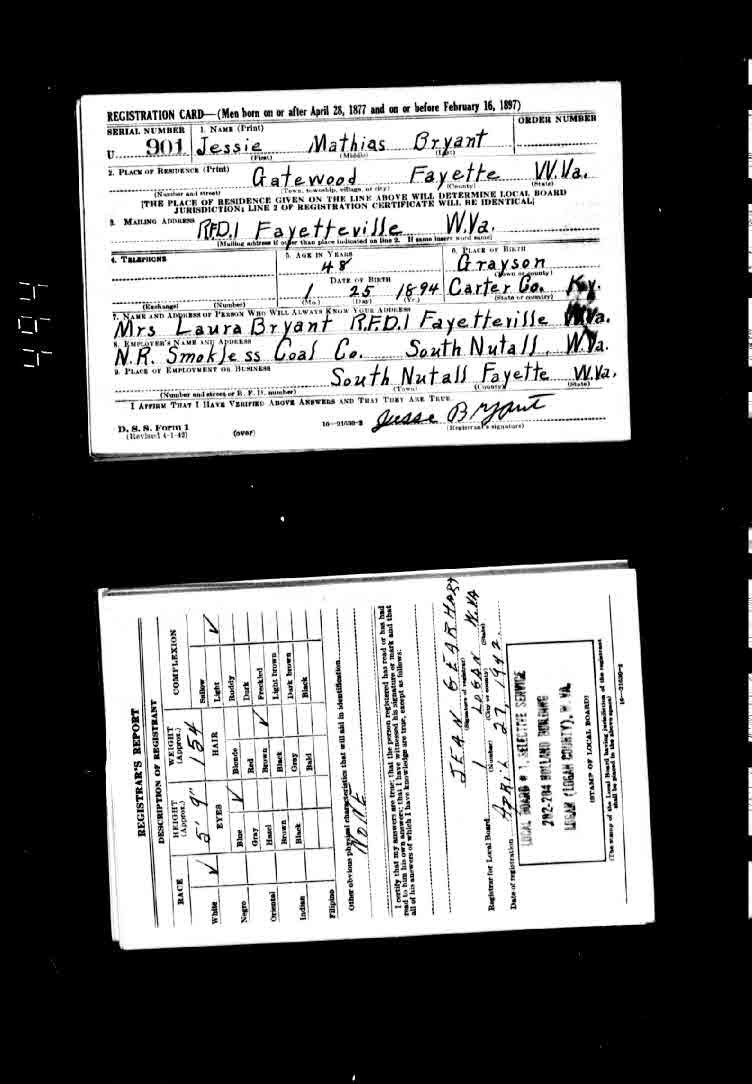 REGISTRATION CARD—(Men born on or after April 28, 1877 and on or before February 16, 1897)
SERIAL NUMBER 1. NAME (Print) ORDER NUMBER
U 901 Jessie Mathias Bryant
(First) (Middle) (Last)
2. PLACE OF RESIDENCE (Print)
Gatewood Fayette W.Va.
(Number and street) (Town, township, village, or city) (County) (State)
[THE PLACE OF RESIDENCE GIVEN ON THE LINE ABOVE WILL DETERMINE LOCAL BOARD
JURISDICTION; LINE 2 OF REGISTRATION CERTIFICATE WILL BE IDENTICAL]
3. MAILING ADDRESS
R.F.D.1 Fayetteville W.Va.
[Mailing address if other than place indicated on line 2. If same insert word same]
4. TELEPHONE 5. AGE IN YEARS 6. PLACE OF BIRTH
48 Grayson
(Town or county)
DATE OF BIRTH
1 25 1894 Carter Co. Ky.
(Exchange) (Number) (Mo.) (Day) (Yr.) (State or country)
7. NAME AND ADDRESS OF PERSON WHO WILL ALWAYS KNOW YOUR ADDRESS
Mrs Laura Bryant R.F.D.1 Fayetteville W.Va.
8. EMPLOYER'S NAME AND ADDRESS
N.R. Smokless Coal Co. South Nutall, W.Va.
9. PLACE OF EMPLOYMENT OR BUSINESS
South Nutall Fayette W.Va.
(Number and street or R. F. D. number) (Town) (County) (State)
I AFFIRM THAT I HAVE VERIFIED ABOVE ANSWERS AND THAT THEY ARE TRUE.
D. S. S. Form 1
(Revised 4-1-42) (over) 16—21630-2 Jesse Bryant
(Registrant's signature)
494
REGISTRAR'S REPORT
DESCRIPTION OF REGISTRANT
RACE HEIGHT (Approx.) WEIGHT (Approx.) COMPLEXION
5' 9" 154
EYES HAIR
White ✓ Blue ✓ Blonde Sallow
Light ✓
Negro Gray Red Ruddy
Dark
Oriental Hazel Brown ✓ Freckled
Brown Black Light brown
Indian Black Gray Dark brown
Bald Black
Filipino
Other obvious physical characteristics that will aid in identification
NONE
I certify that my answers are true; that the person registered has read or has had
read to him his own answers; that I have witnessed his signature or mark and that
all of his answers of which I have knowledge are true, except as follows:
JEAN GEARHART
(Signature of registrar)
Registrar for Local Board 1 LOGAN W.VA
(Number) (City or county) (State)
Date of registration APRIL 27, 1942.
LOCAL BOARD # 1, SELECTIVE SERVICE
202-204 HOLLAND BUILDING
LOGAN (LOGAN COUNTY), W. VA.
(STAMP OF LOCAL BOARD)
(The stamp of the Local Board having jurisdiction of the registrant
shall be placed in the above space)
16—21630-2